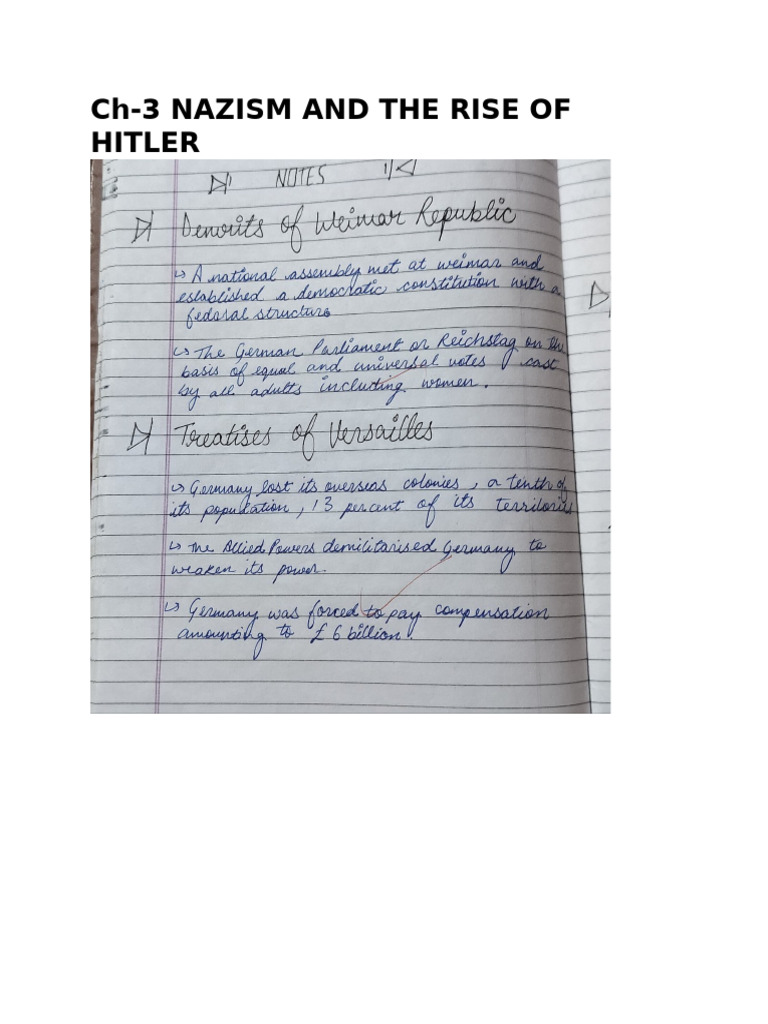 Ch-3 NAZISM AND THE RISE OF
HITLER
NOTES
Demrits of Weimar Republic
↳ A national assembly met at weimar and
established a democratic constitution with a
federal structure
↳ The German Parliament or Reichstag on the
basis of equal and universal votes cast
by all adults including women.
Treatises of Versailles
↳ Germany lost its overseas colonies, a tenth of
its population, 13 percent of its territories
↳ The Allied Powers demilitarised Germany to
weaken its power.
↳ Germany was forced to pay compensation
amounting to £ 6 billion.